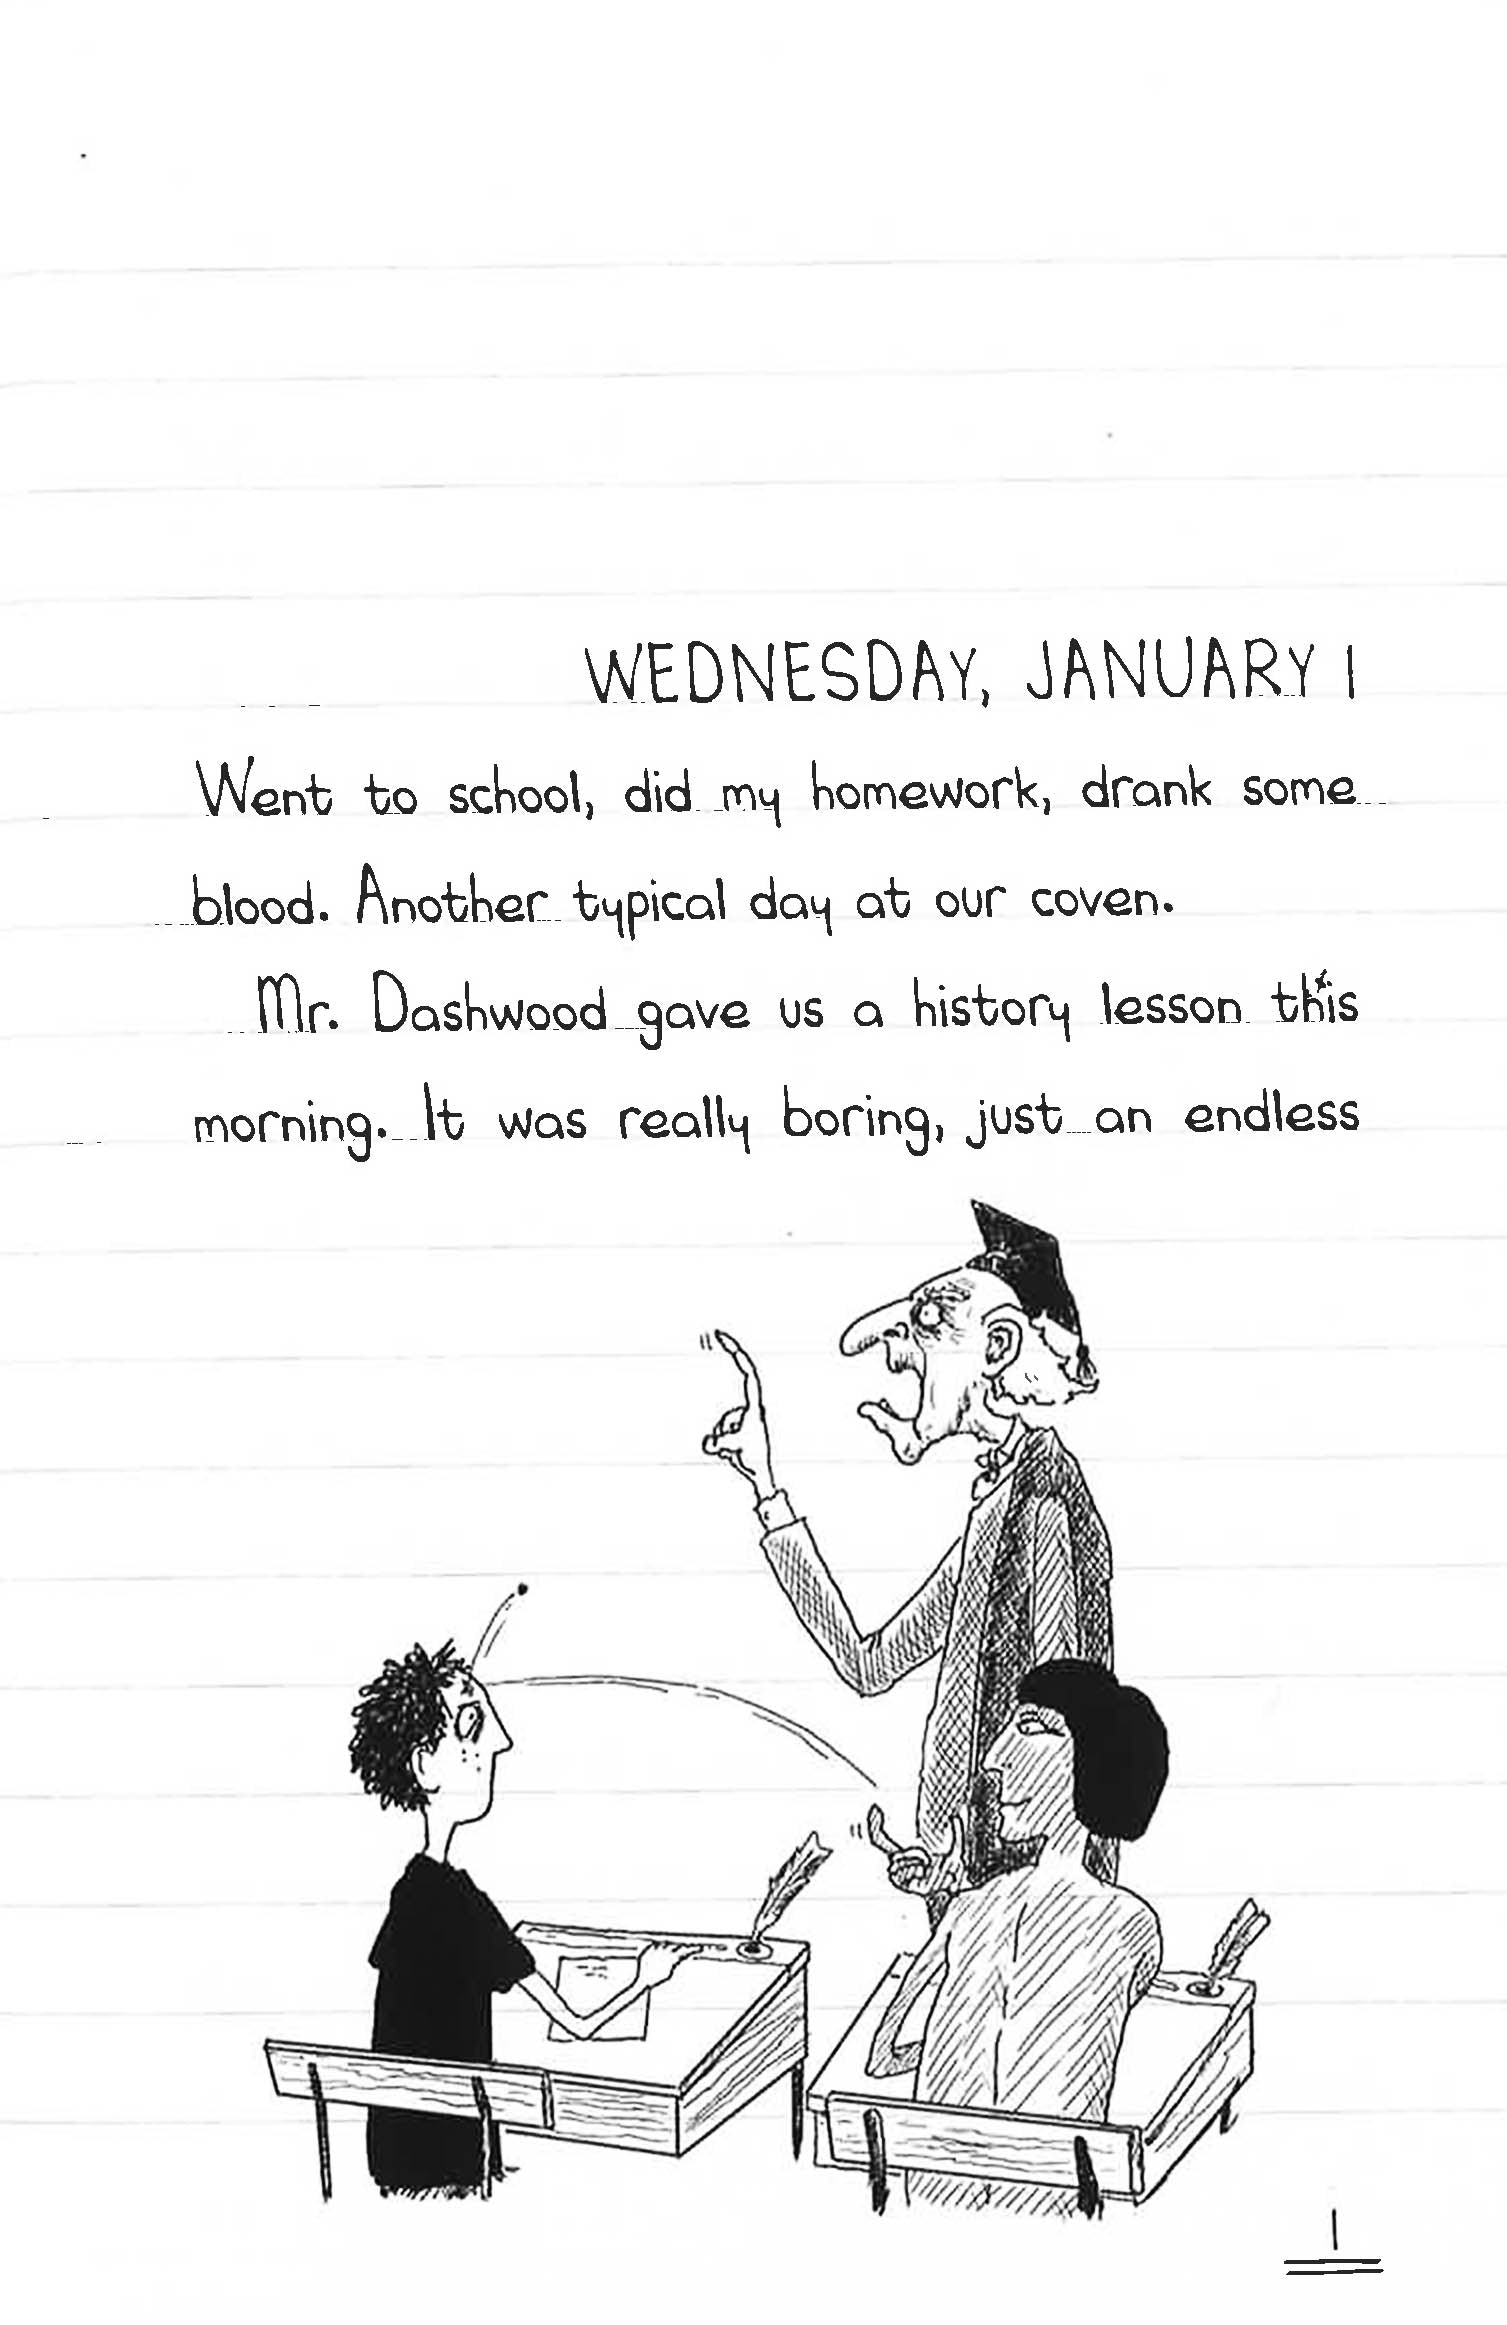 WEDNESDAY, JANUARY 1
Went to school, did my homework, drank some
blood. Another typical day at our coven.
Mr. Dashwood gave us a history lesson this
morning. It was really boring, just an endless
1